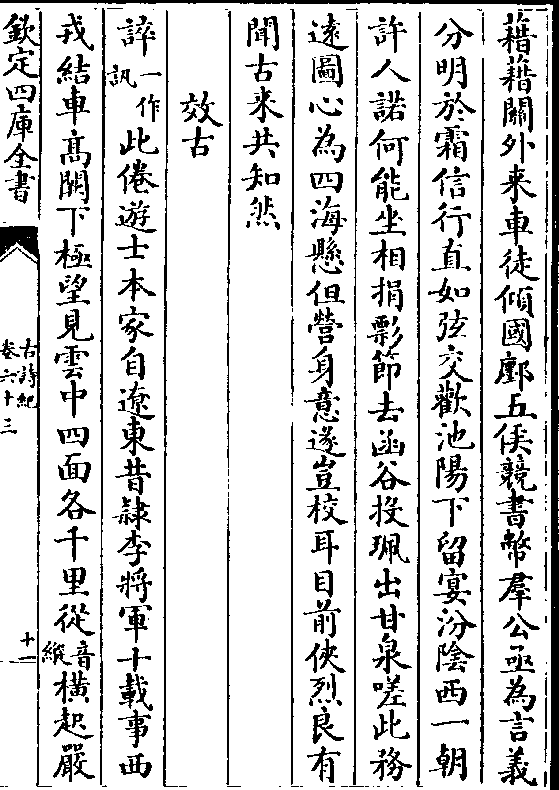 藉藉關外来車徒傾國鄽五侯競書幣羣公亟為言義
分明於霜信行直如弦交歡池陽下留宴汾陰西一朝
許人諾何能坐相捐彯節去函谷投珮出甘泉嗟此務
逺圖心為四海懸但營身意遂豈校耳目前俠烈良有
聞古来共知然
效古
誶一作訊此倦遊士本家自遼東昔隸李將軍十載事西
戎結車髙闕下極望見雲中四面各千里從音縱橫起嚴
欽定四庫全書
古詩紀
卷六十三
十一